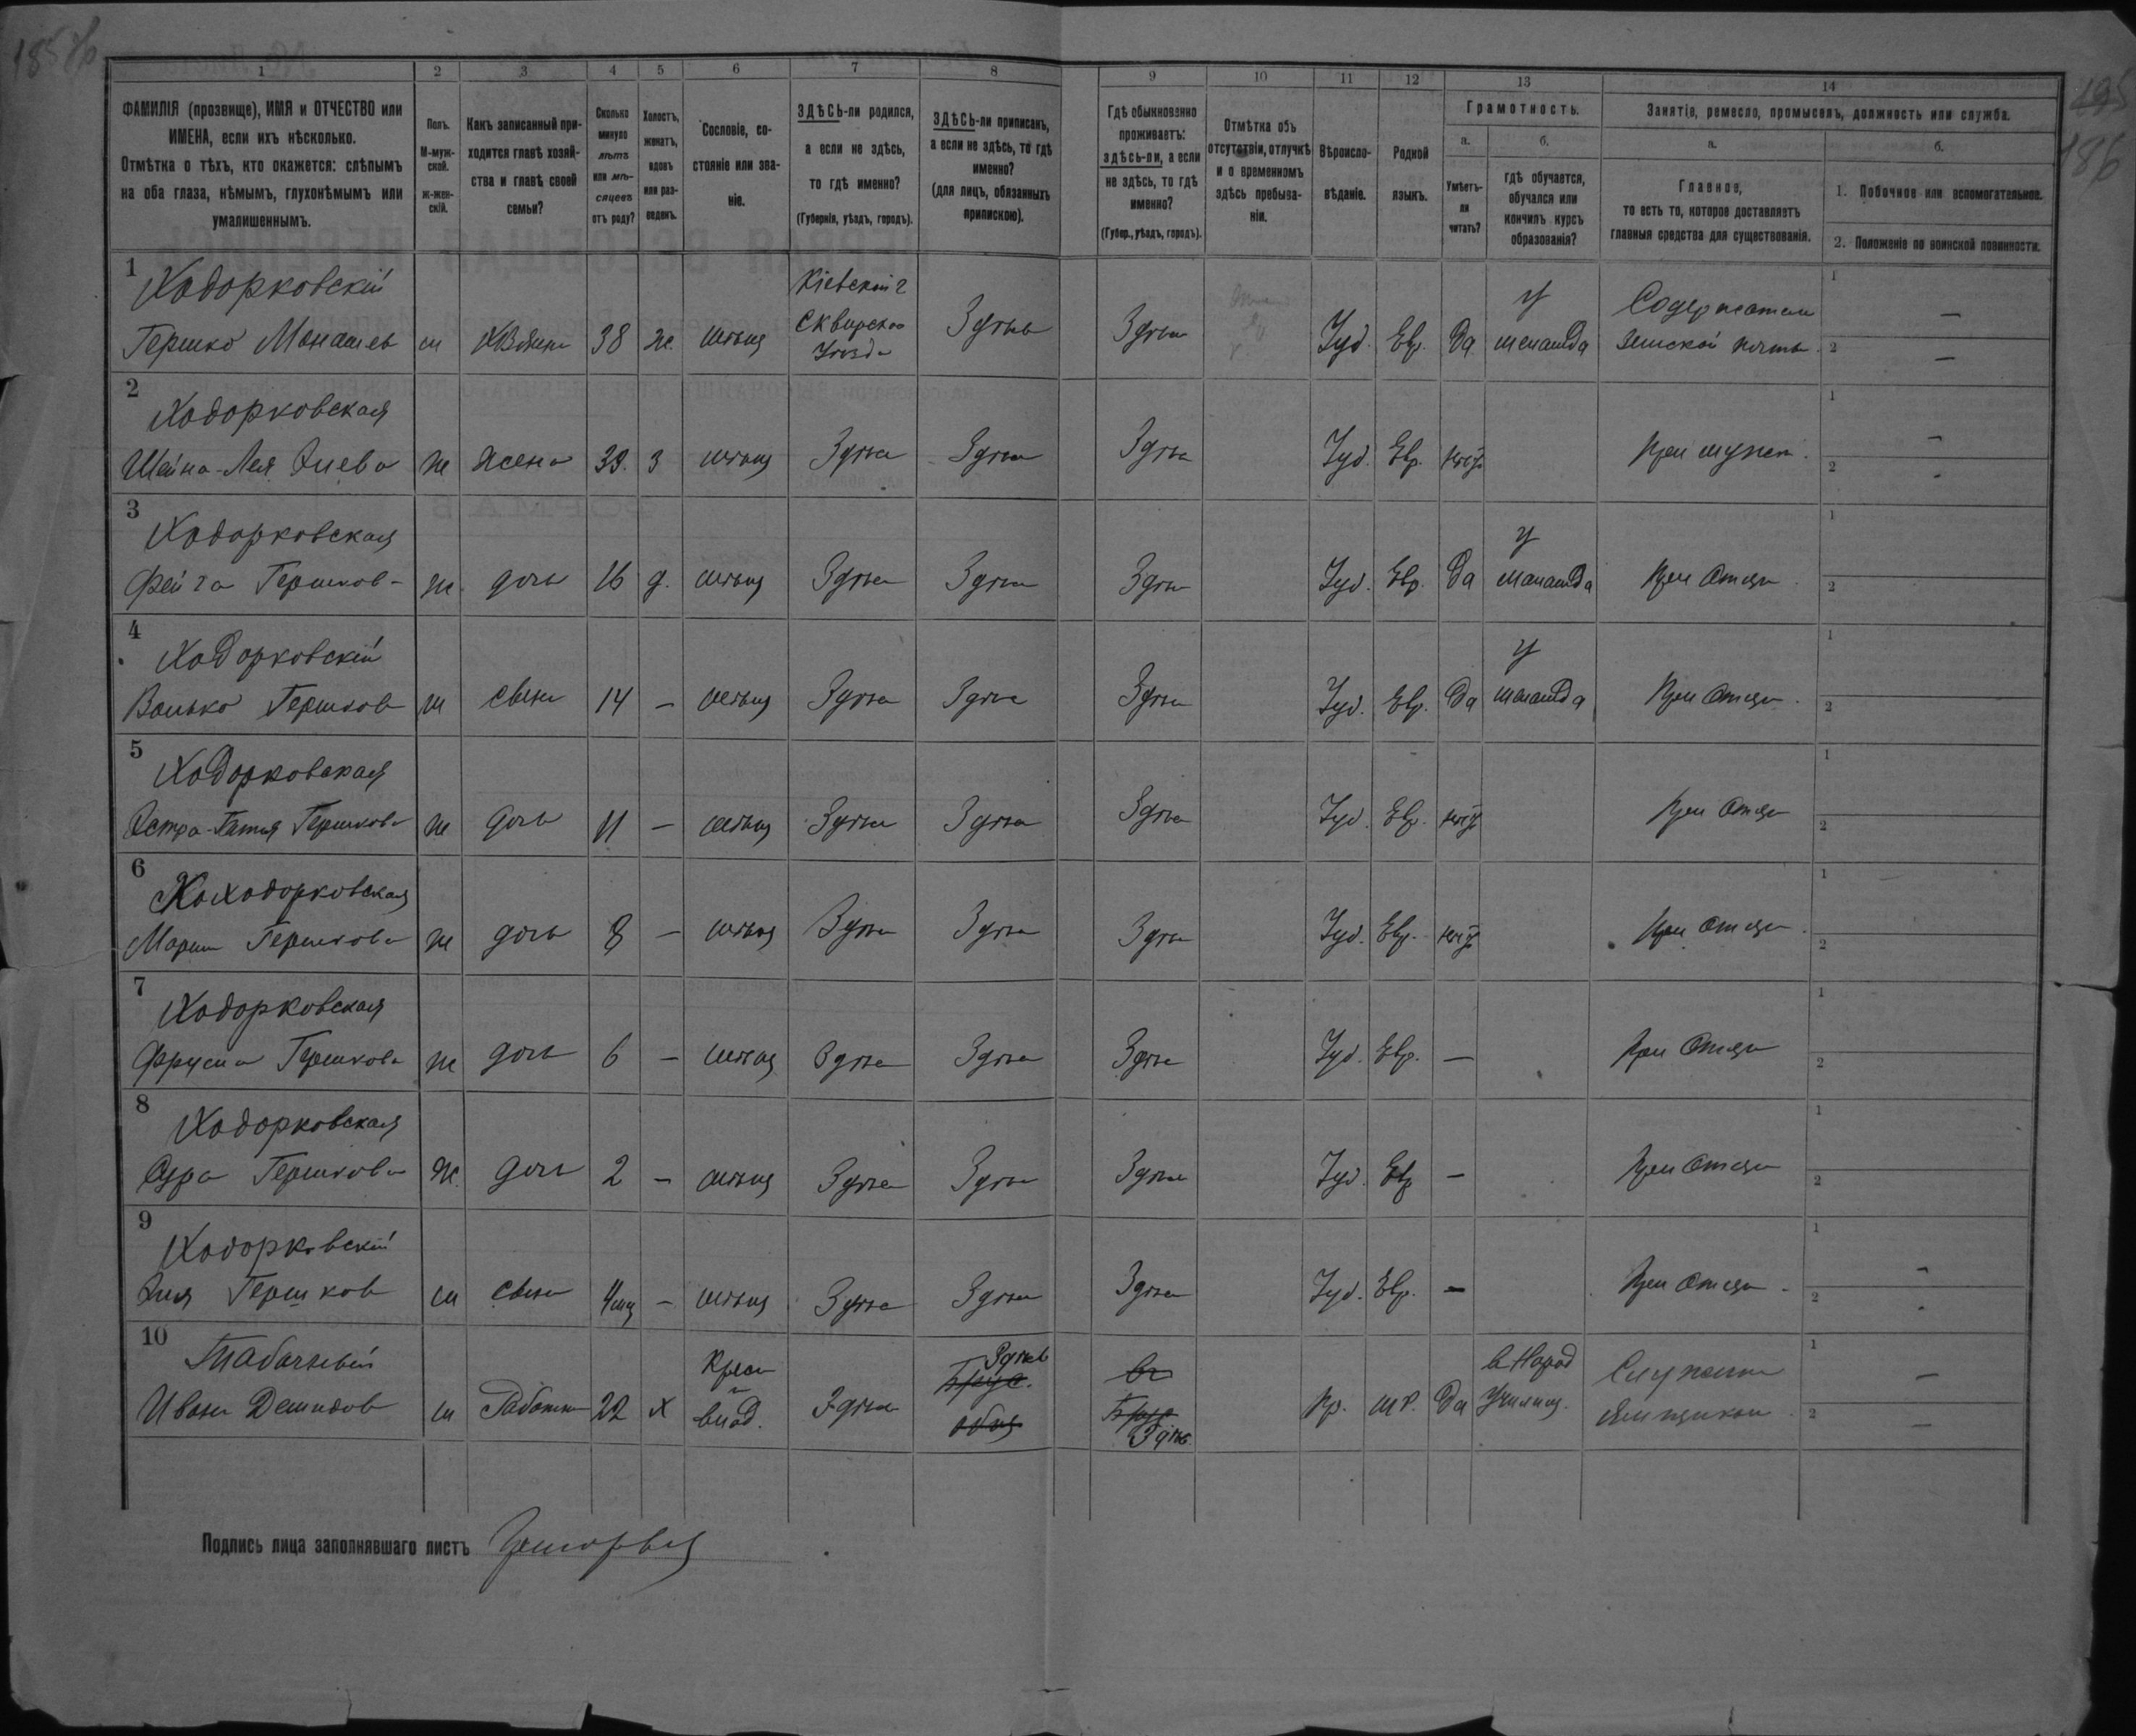 1 2 3 4 5 6 7 8 9 10 11 12 13 14
ФАМИЛІЯ (прозвище), ИМЯ и ОТЧЕСТВО или
ИМЕНА, если ихъ нѣсколько.
Отмѣтка о тѣхъ, кто окажется: слѣпымъ
на оба глаза, нѣмымъ, глухонѣмымъ или
умалишеннымъ.
Полъ.
М-муж-
ской.
ж-жен-
скій.
Какъ записанный при-
ходится главѣ хозяй-
ства и главѣ своей
семьи?
Сколько
минуло
лѣтъ
или мѣ-
сяцевъ
отъ роду?
Холостъ,
женатъ,
вдовъ
или раз-
веденъ.
Сословіе, со-
стояніе или зва-
ніе.
ЗДѢСЬ-ли родился,
а если не здѣсь,
то гдѣ именно?
(Губернія, уѣздъ, городъ).
ЗДѢСЬ-ли приписанъ,
а если не здѣсь, то гдѣ
именно?
(для лицъ, обязанныхъ
припискою).
Гдѣ обыкновенно
проживаетъ:
здѣсь-ли, а если
не здѣсь, то гдѣ
именно?
(Губер., уѣздъ, городъ).
Отмѣтка объ
отсутствіи, отлучкѣ
и о временномъ
здѣсь пребыва-
ніи.
Вѣроиспо-
вѣданіе.
Родной
языкъ.
Грамотность.
а.
Умѣетъ-
ли
читать?
б.
гдѣ обучается,
обучался или
кончилъ курсъ
образованія?
Занятіе, ремесло, промыселъ, должность или служба.
а.
Главное,
то есть то, которое доставляетъ
главныя средства для существованія.
б.
1. Побочное или вспомогательное.
2. Положеніе по воинской повинности.
1
Ходорковскій Кіевской г У Содержатель 1 —
Гершко Монашев м Хозяинъ 38 ж. мѣщ Сквирскаго Здѣсь Здѣсь Іуд. Евр. Да меламда Земской почты 2 —
Уѣзда
2
Ходорковская 1 —
Шейна-Лея Зиева ж жена 39. З мѣщ Здѣсь Здѣсь Здѣсь Іуд. Евр. нѣт При мужѣ. 2 -
3
Ходорковская У 1
Фейга Гершков- ж. дочь 16 д. мѣщ Здѣсь Здѣсь Здѣсь Іуд. Евр. Да меламда При Отцѣ 2
4
Ходорковскій У 1
Волько Гершков м сынъ 14 — мѣщ Здѣсь Здѣсь Здѣсь Іуд. Евр. Да меламда При Отцѣ. 2
5
Ходорковская 1
Гершкова ж дочь 11 — мѣщ Здѣсь Здѣсь Здѣсь Іуд. Евр. нѣт При Отцѣ 2
6
Ходорковская 1
Марим Гершкова ж дочь 8 — мѣщ Здѣсь Здѣсь Здѣсь Іуд. Евр. нѣт При Отцѣ. 2
7
Ходорковская 1
Фрума Гершкова ж дочь 6 — мѣщ Здѣсь Здѣсь Здѣсь Іуд. Евр. — При Отцѣ 2
8
Ходорковская 1
Сура Гершкова ж. дочь 2 — мѣщ Здѣсь Здѣсь Здѣсь Іуд. Евр — При Отцѣ 2
9
Ходорковскій 1 -
Зия Гершков м сынъ 4 мц — мѣщ Здѣсь Здѣсь Здѣсь Іуд. Евр. — При Отцѣ. 2 -
10
Табачный Крест Здѣсь въ в Народ 1 —
Иванъ Демидов м Работник 22 х влад. Здѣсь общ Здѣсь Пр. м.р. Да Училищ. Ямщиком. 2 —
Подпись лица заполнявшаго листъ
186